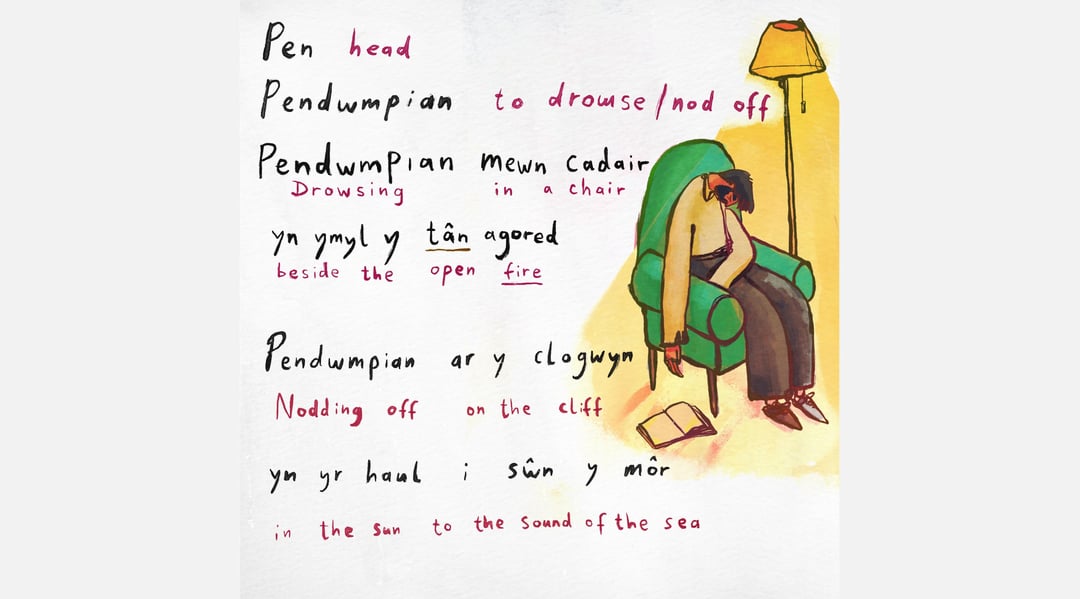 Pen head
Pendwmpian to drowse/nod off
Pendwmpian mewn cadair
Drowsing in a chair
yn ymyl y tân agored
beside the open fire
Pendwmpian ar y clogwyn
Nodding off on the cliff
yn yr haul i sŵn y môr
in the sun to the sound of the sea